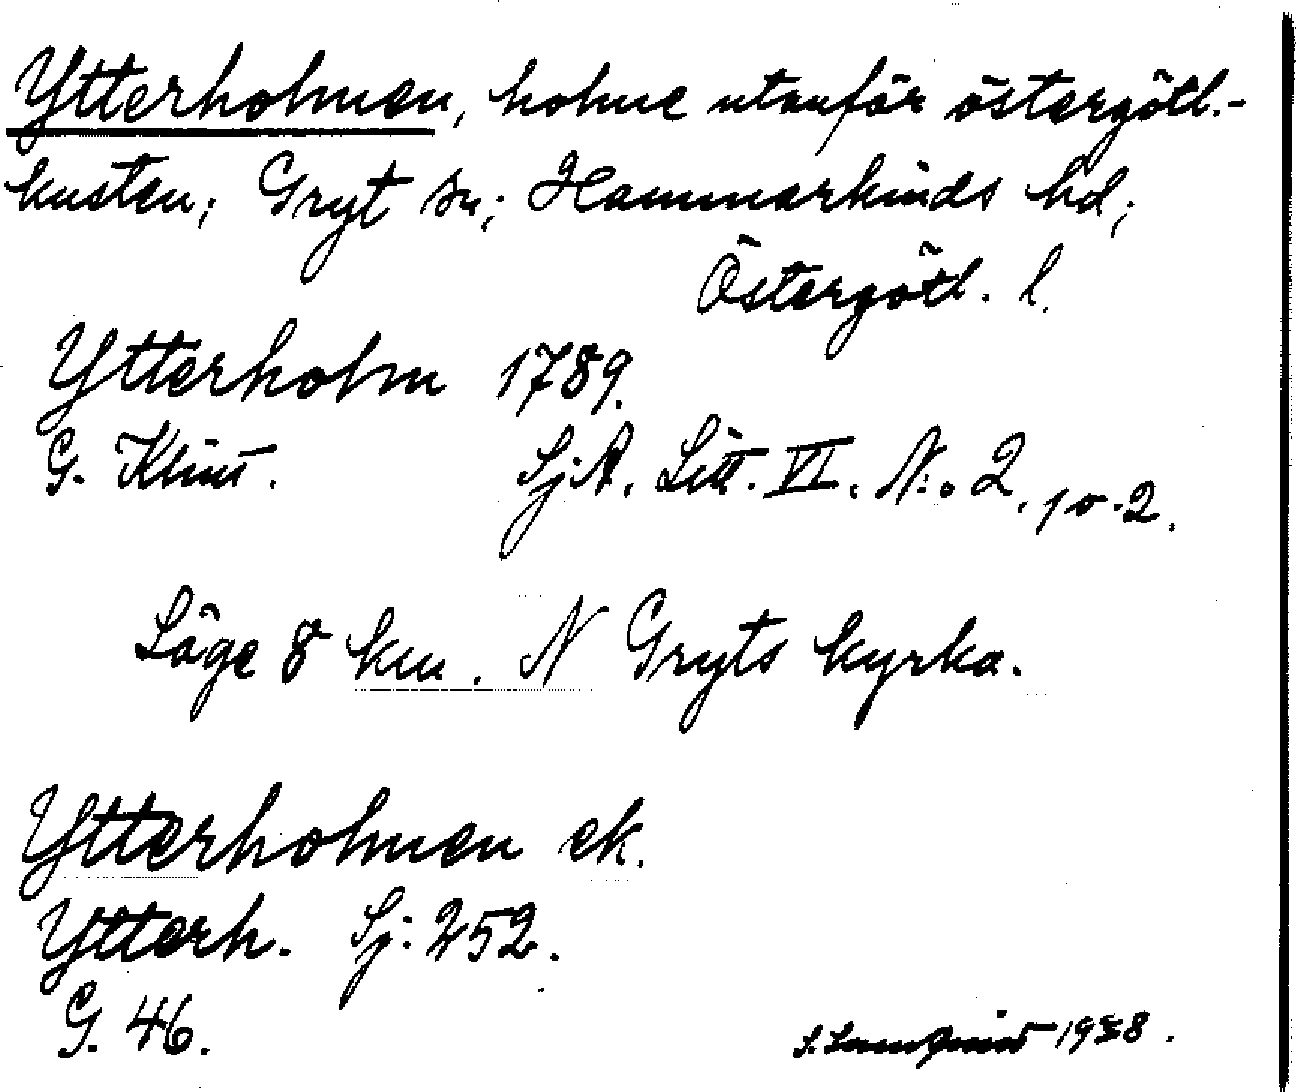 Ytterholmen, holme utanför östergötl.-
kusten; Gryt sn; Hammarkinds hd;
Östergötl. l.
Ytterholm 1789.
G. Klint. SjA. Litt. VI. N:o 2. 10-2.
Läge 8 km. N Gryts kyrka.
Ytterholmen ek.
Ytterh. Sj: 252.
G. 46.
S.